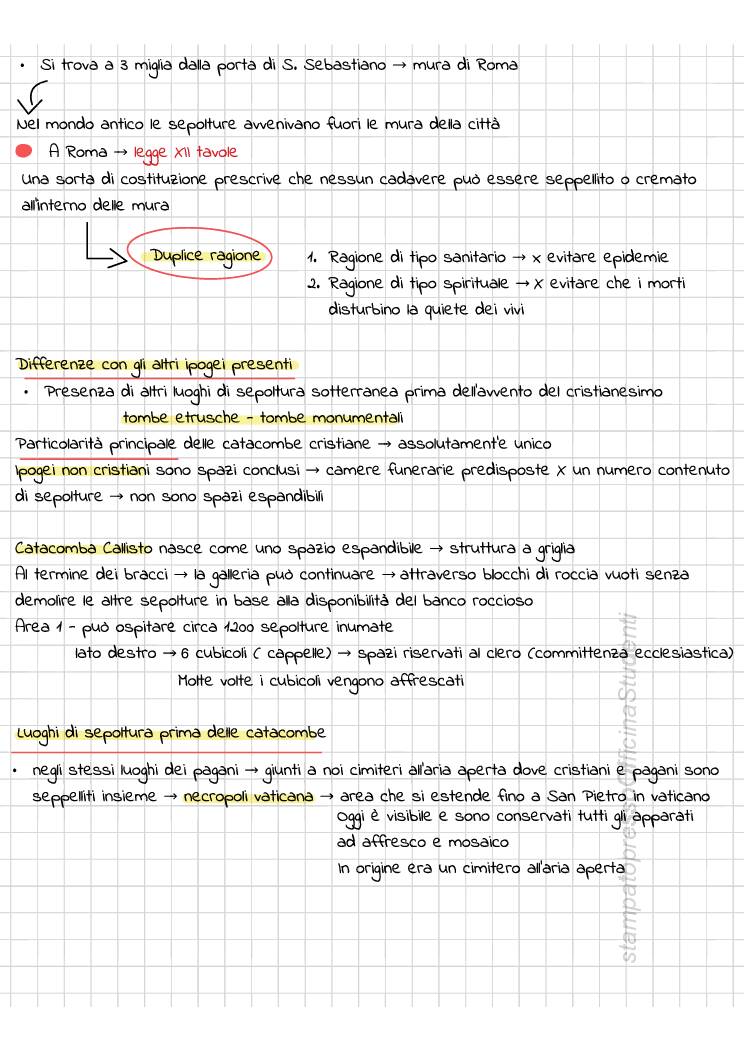 • Si trova a 3 miglia dalla porta di S. Sebastiano → mura di Roma
Nel mondo antico le sepolture avvenivano fuori le mura della città
A Roma → legge XII tavole
Una sorta di costituzione prescrive che nessun cadavere può essere seppellito o cremato
all'interno delle mura
Duplice ragione
1. Ragione di tipo sanitario → x evitare epidemie
2. Ragione di tipo spirituale → x evitare che i morti
disturbino la quiete dei vivi
Differenze con gli altri ipogei presenti
• Presenza di altri luoghi di sepoltura sotterranea prima dell'avvento del cristianesimo
tombe etrusche - tombe monumentali
Particolarità principale delle catacombe cristiane → assolutament'e unico
Ipogei non cristiani sono spazi conclusi → camere funerarie predisposte x un numero contenuto
di sepolture → non sono spazi espandibili
Catacomba Callisto nasce come uno spazio espandibile → struttura a griglia
Al termine dei bracci → la galleria può continuare → attraverso blocchi di roccia vuoti senza
demolire le altre sepolture in base alla disponibilità del banco roccioso
Area 1 - può ospitare circa 1200 sepolture inumate
lato destro → 6 cubicoli ( cappelle) → spazi riservati al clero (committenza ecclesiastica)
Molte volte i cubicoli vengono affrescati
Luoghi di sepoltura prima delle catacombe
• negli stessi luoghi dei pagani → giunti a noi cimiteri all'aria aperta dove cristiani e pagani sono
seppelliti insieme → necropoli vaticana → area che si estende fino a San Pietro in vaticano
Oggi è visibile e sono conservati tutti gli apparati
ad affresco e mosaico
In origine era un cimitero all'aria aperta
stampatopressoOfficinaStudenti